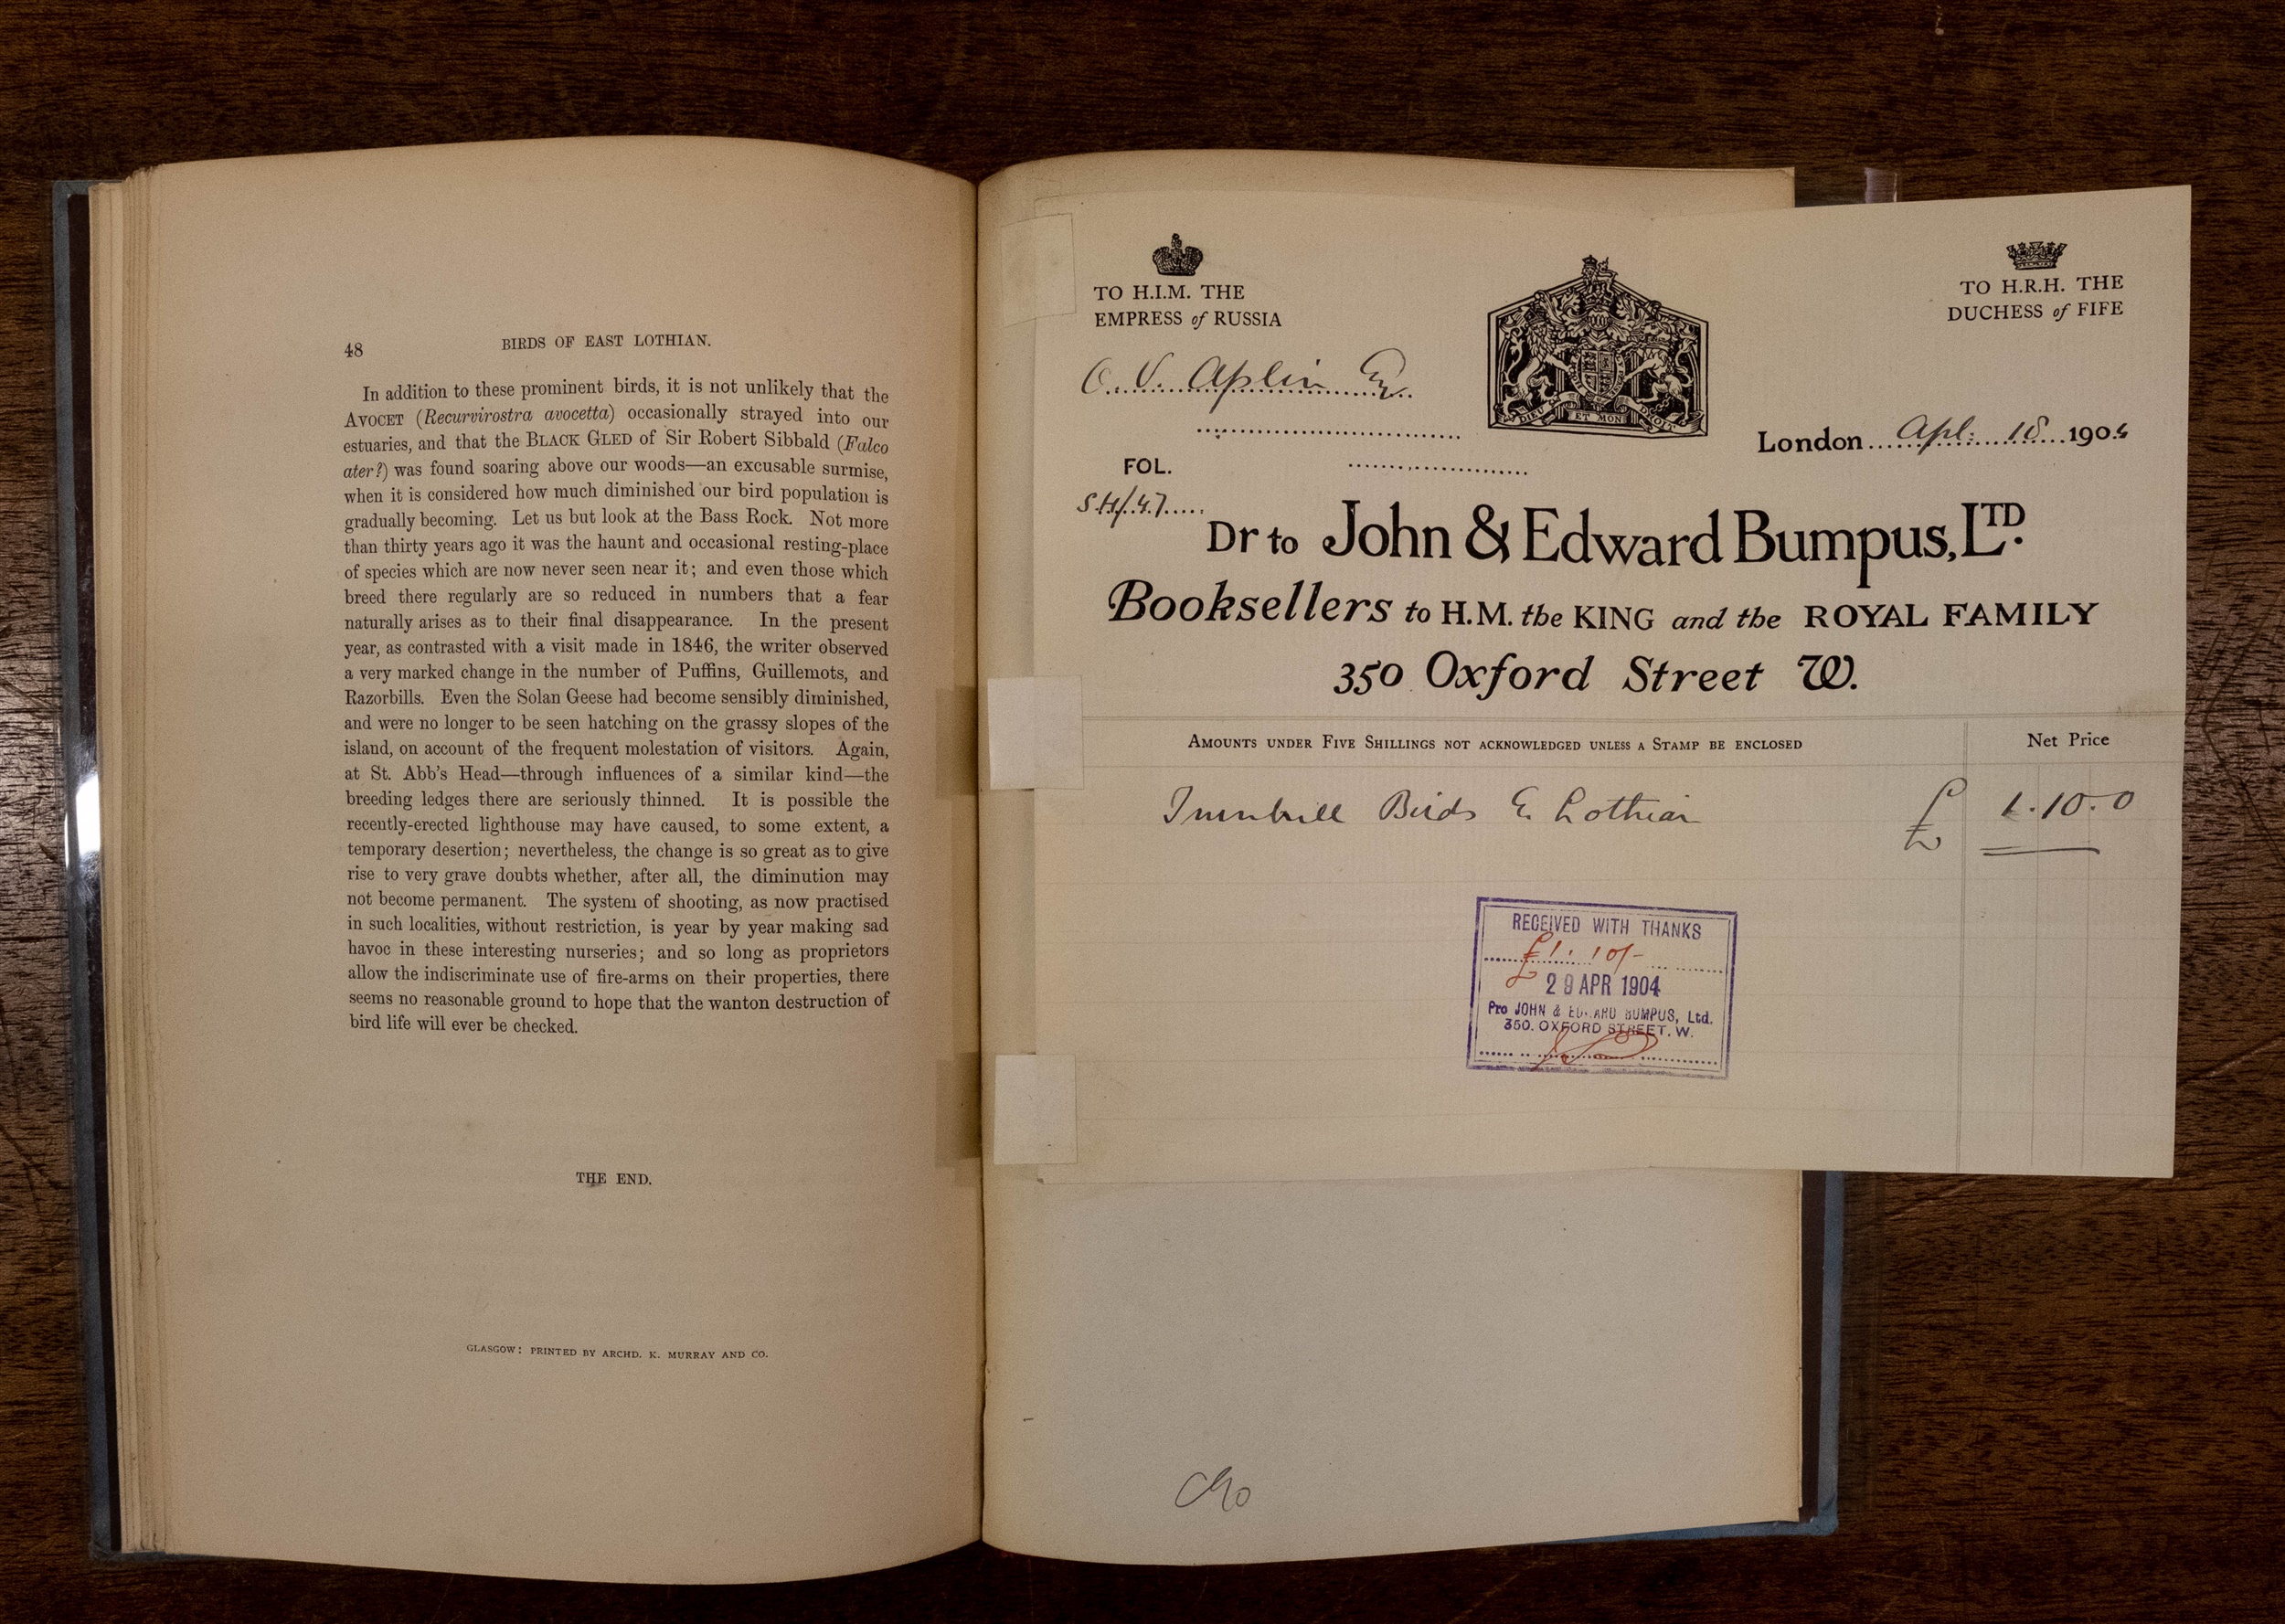 48 BIRDS OF EAST LOTHIAN.
In addition to these prominent birds, it is not unlikely that the
AVOCET (Recurvirostra avocetta) occasionally strayed into our
estuaries, and that the BLACK GLED of Sir Robert Sibbald (Falco
ater?) was found soaring above our woods—an excusable surmise,
when it is considered how much diminished our bird population is
gradually becoming. Let us but look at the Bass Rock. Not more
than thirty years ago it was the haunt and occasional resting-place
of species which are now never seen near it; and even those which
breed there regularly are so reduced in numbers that a fear
naturally arises as to their final disappearance. In the present
year, as contrasted with a visit made in 1846, the writer observed
a very marked change in the number of Puffins, Guillemots, and
Razorbills. Even the Solan Geese had become sensibly diminished,
and were no longer to be seen hatching on the grassy slopes of the
island, on account of the frequent molestation of visitors. Again,
at St. Abb's Head—through influences of a similar kind—the
breeding ledges there are seriously thinned. It is possible the
recently-erected lighthouse may have caused, to some extent, a
temporary desertion; nevertheless, the change is so great as to give
rise to very grave doubts whether, after all, the diminution may
not become permanent. The system of shooting, as now practised
in such localities, without restriction, is year by year making sad
havoc in these interesting nurseries; and so long as proprietors
allow the indiscriminate use of fire-arms on their properties, there
seems no reasonable ground to hope that the wanton destruction of
bird life will ever be checked.
THE END.
GLASGOW: PRINTED BY ARCHD. K. MURRAY AND CO.
TO H.I.M. THE
EMPRESS of RUSSIA
TO H.R.H. THE
DUCHESS of FIFE
O. V. Aplin Esq.
DIEU ET MON DROIT
London Apl. 18 1904
FOL.
Dr to John & Edward Bumpus, LTD.
Booksellers to H.M. the KING and the ROYAL FAMILY
350 Oxford Street W.
AMOUNTS UNDER FIVE SHILLINGS NOT ACKNOWLEDGED UNLESS A STAMP BE ENCLOSED
Net Price
Turnbull Birds E. Lothian £ 1.10.0
RECEIVED WITH THANKS
£1:10/-
29 APR 1904
Pro JOHN & EDWARD BUMPUS, Ltd.
350. OXFORD STREET. W.